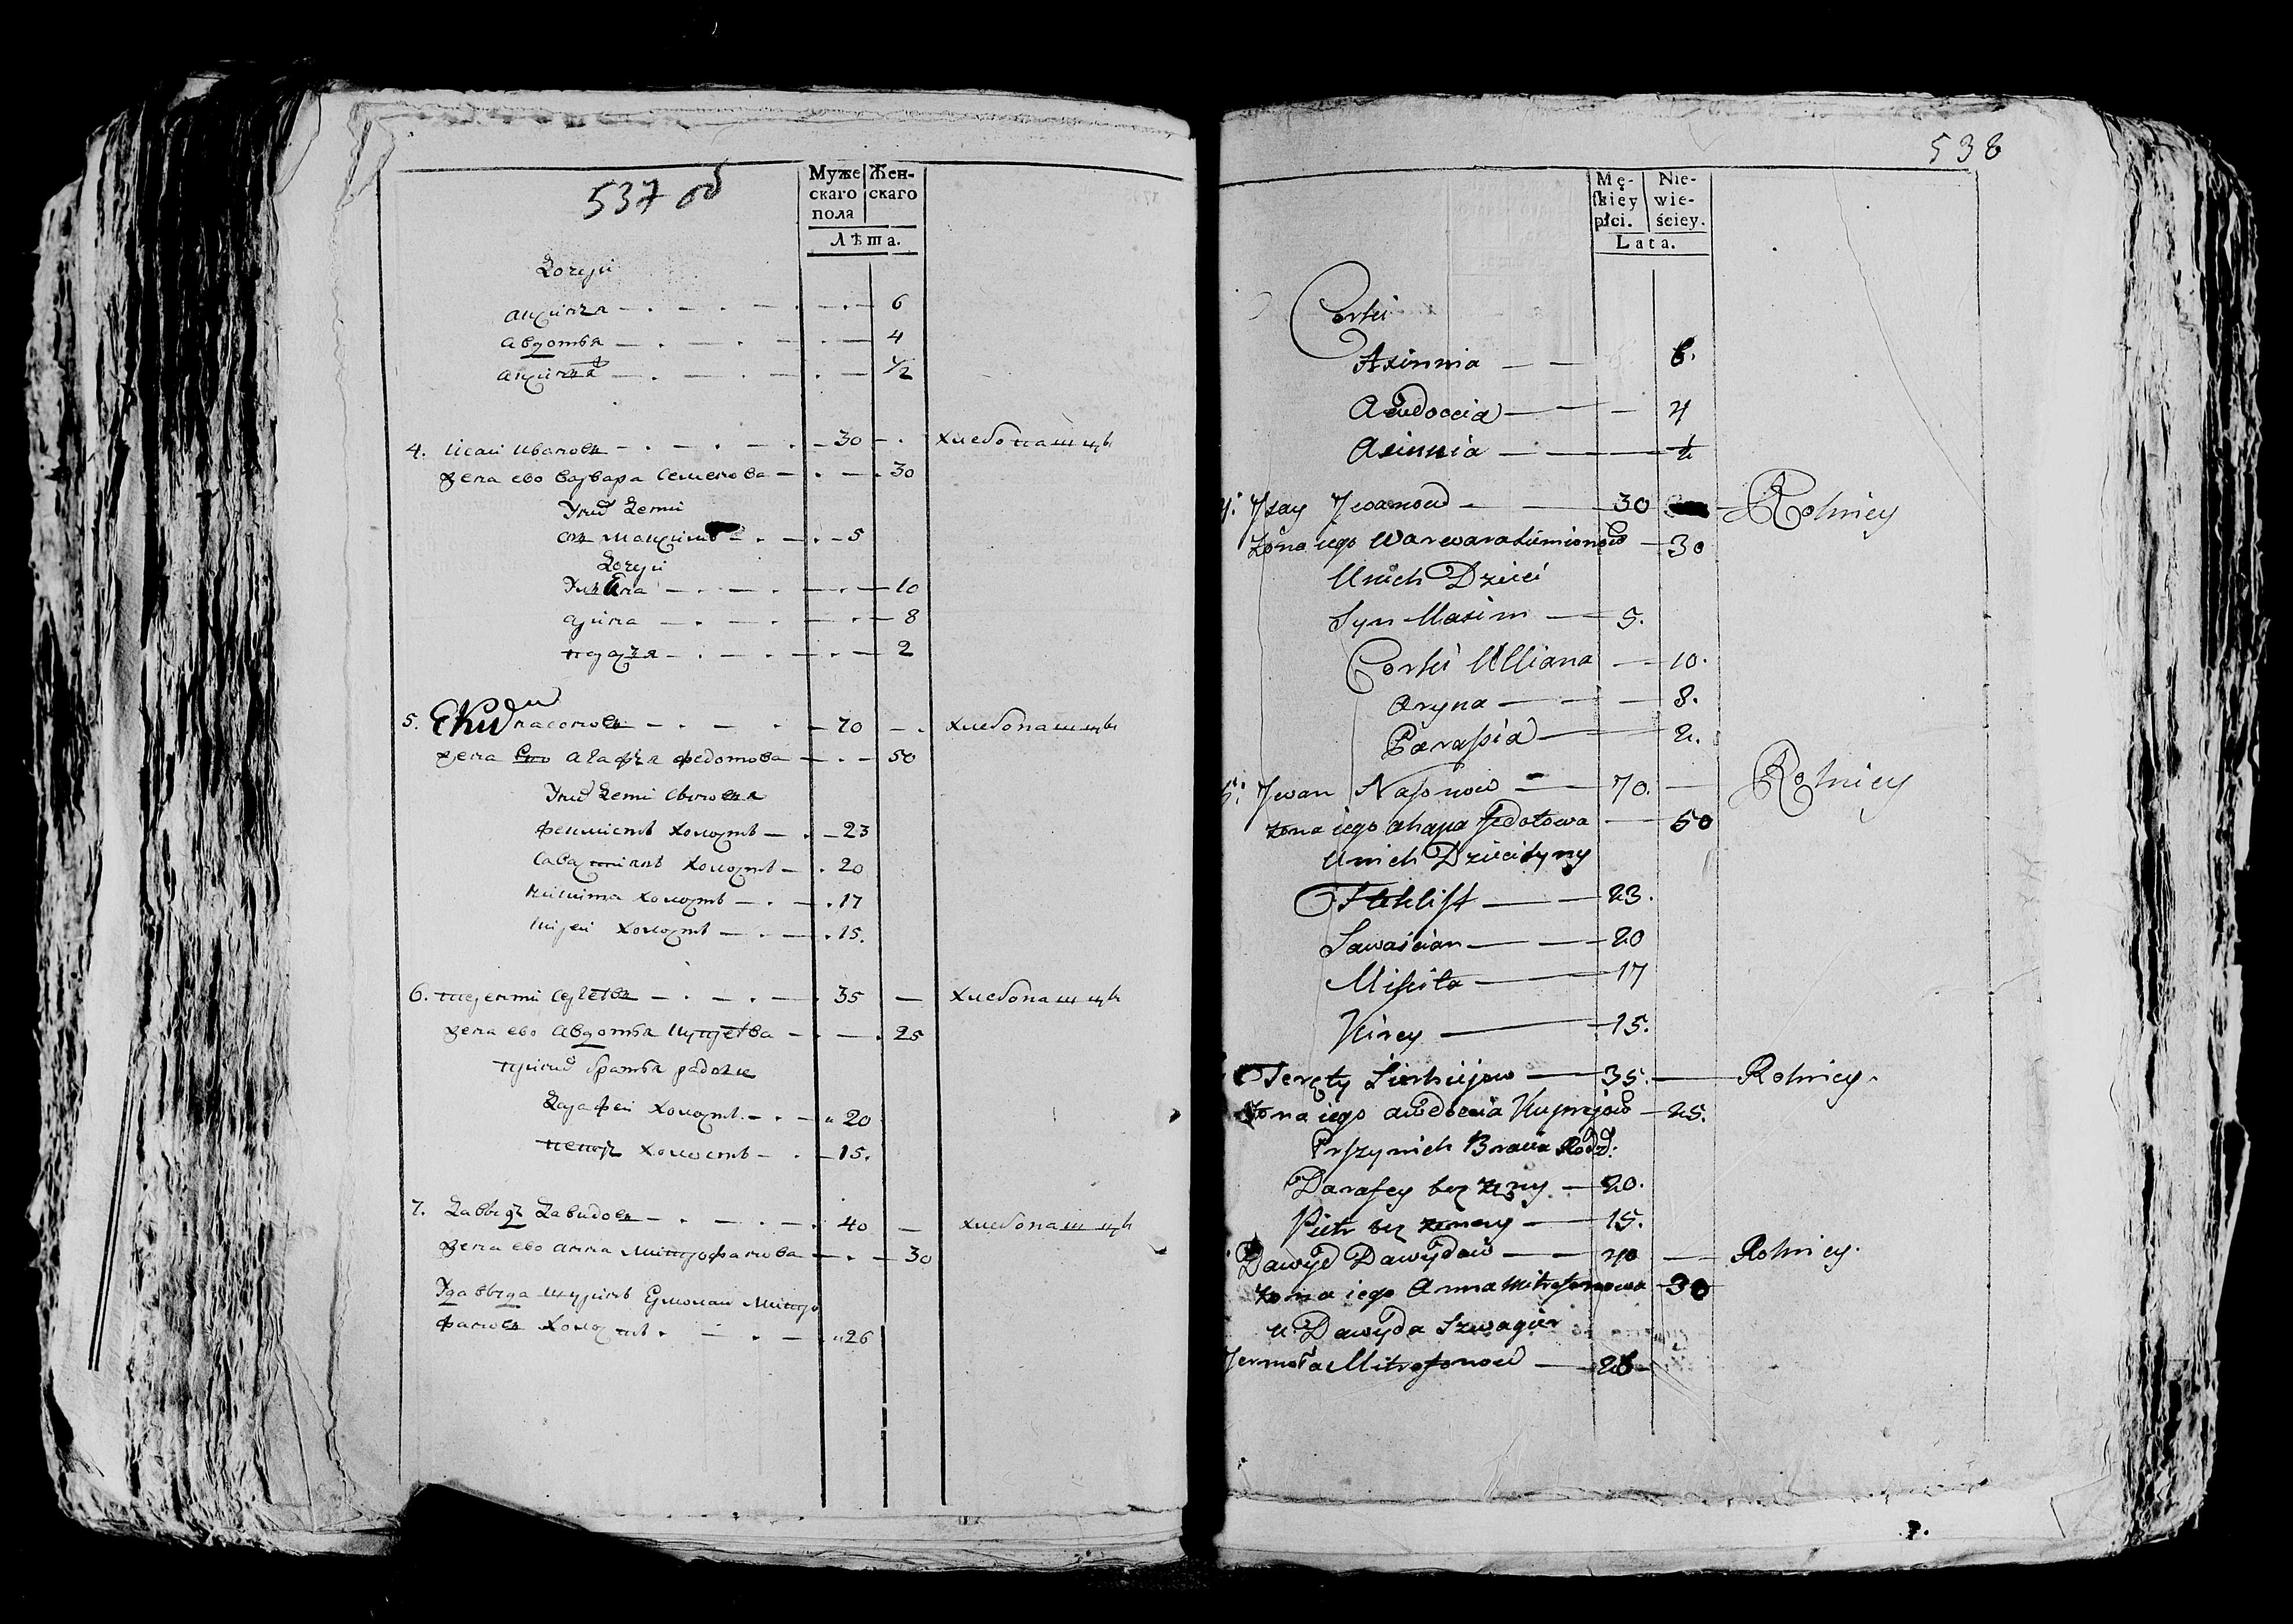 537 об
Муже
скаго
пола
Жен-
скаго
Лѣта.
Дочери
аксинья 6
авдотья 4
аксинья 1/2
4. исаи ивановъ 30 хлебопашцы
жена ево варвара семенова 30
У них дети
сынъ максимъ 5
Дочери
Ульяна 10
арина 8
парасья 2
5. насоновъ 70 хлебопашцы
жена ево агафья федотова 50
У них дети сыновья
феклистъ холостъ 23
савастиянъ холостъ 20
никита холостъ 17
кирей холостъ 15.
6. терентий сергеевъ 35 хлебопашцы
жена ево авдотья купреева 25
при них братья родные
Дарафей холостъ 20
петръ холостъ 15.
7. Давыдъ Давидовъ 40 хлебопашцы
жена ево анна Митрофанова 30
У давыда шуринъ Ермолай Митро
фановъ холостъ 26
538
Mę-
skiey
płci.
Nie-
wie-
ściey.
Lata.
Corki
Axinnia 6.
Awdoccia 4
Axinnia ½
4. Jsay Jwanow 30 Rolnicy
żona iego Warwara Simionow 30
U nich Dzieci
Syn Maxim 5.
Corki Ulliana 10.
Aryna 8.
Parasia 2.
5. Jwan Nasonow 70. Rolnicy
żona iego Ahapa Fedotowa 50
U nich Dzieci Syny
Feklist 23.
Sawaścian 20
Mikita 17
Kirey 15.
Teręty Sierhiejow 35. Rolnicy.
żona iego Awdocia Kuprejow 25.
Przy nich Bracia Rodz:
Darafey bez żony 20.
Piotr bez żony 15.
Dawyd Dawydow 40 Rolnicy.
żona iego Anna Mitrofonowa 30
U Dawyda Szwagier
Jermoła Mitrofonow 26